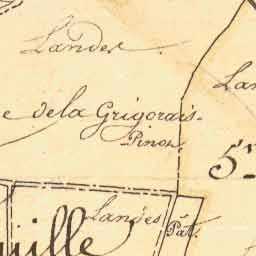 Landes.
La
e de la Grigorais.
Pinoz.
5
Landes
Pat.
uille